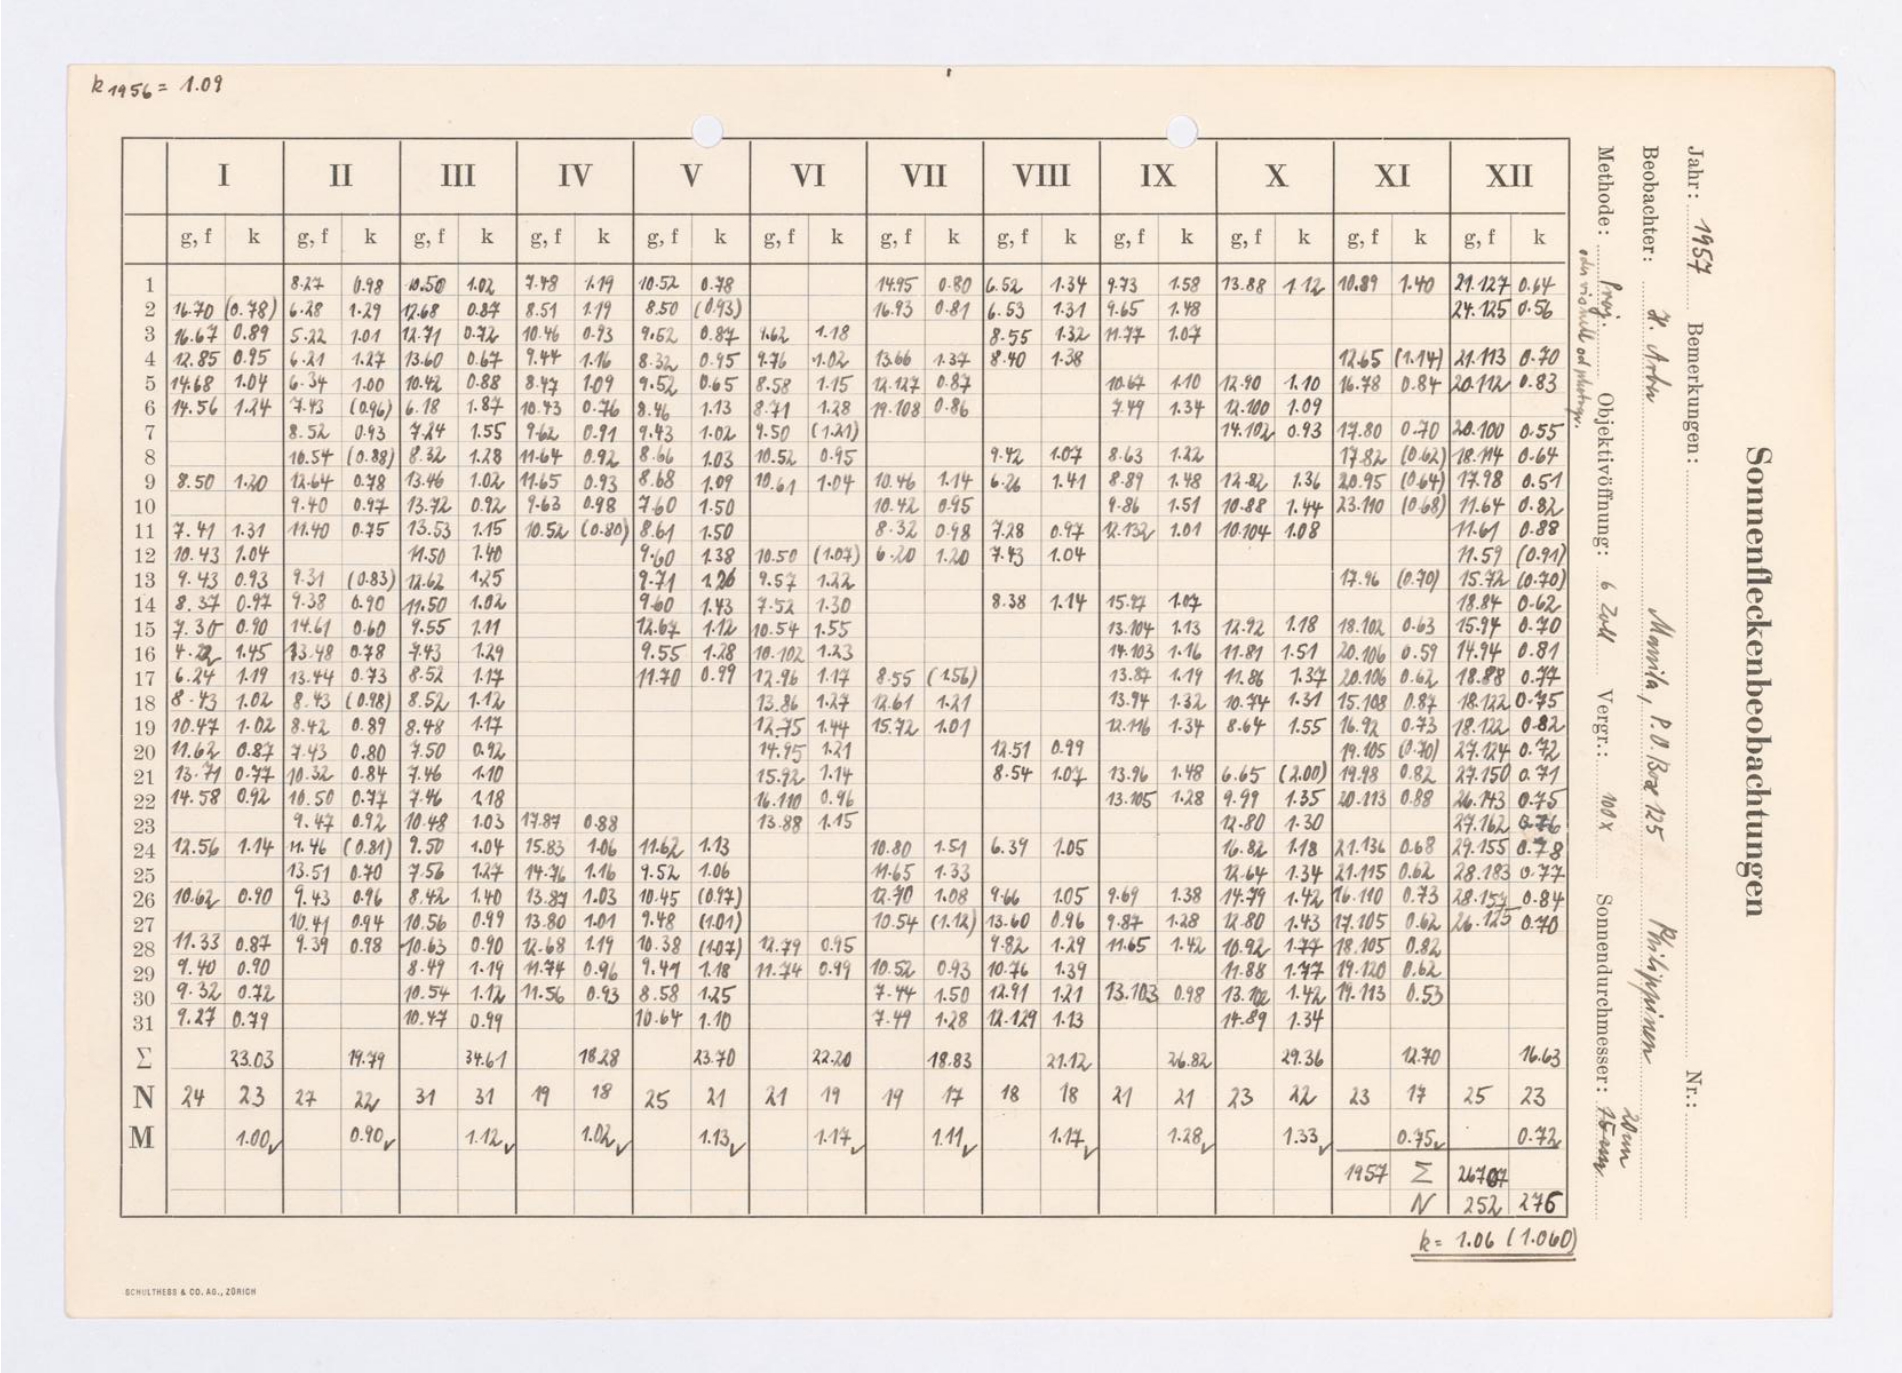 k 1956 = 1.09
I II III IV V VI VII VIII IX X XI XII
g, f k g, f k g, f k g, f k g, f k g, f k g, f k g, f k g, f k g, f k g, f k g, f k
1 8.27 0.98 10.50 1.02 7.48 1.19 10.52 0.78 14.95 0.80 6.52 1.34 9.73 1.58 13.88 1.12 10.89 1.40 21.127 0.64
2 16.70 (0.78) 6.28 1.29 12.68 0.87 8.51 1.19 8.50 (0.93) 16.93 0.81 6.53 1.31 9.65 1.48 24.125 0.56
3 16.67 0.89 5.22 1.01 12.71 0.72 10.46 0.93 9.52 0.87 9.62 1.18 8.55 1.32 11.77 1.07
4 12.85 0.95 6.21 1.27 13.60 0.67 9.44 1.16 8.32 0.95 9.76 1.02 13.66 1.37 8.40 1.38 12.65 (1.14) 21.113 0.70
5 14.68 1.04 6.34 1.00 10.42 0.88 8.47 1.09 9.52 0.65 8.58 1.15 12.127 0.87 10.67 1.10 12.90 1.10 16.78 0.84 20.112 0.83
6 14.56 1.24 7.43 (0.96) 6.18 1.87 10.43 0.76 8.46 1.13 8.71 1.28 14.108 0.86 7.49 1.34 12.100 1.09
7 8.52 0.93 7.24 1.55 9.62 0.91 9.43 1.02 9.50 (1.21) 14.102 0.93 17.80 0.70 20.100 0.55
8 10.54 (0.88) 8.32 1.28 11.64 0.92 8.66 1.03 10.52 0.95 9.42 1.07 8.63 1.22 17.82 (0.62) 18.114 0.64
9 8.50 1.20 12.64 0.78 13.46 1.02 11.65 0.93 8.68 1.09 10.61 1.04 10.46 1.14 6.26 1.41 8.89 1.48 12.82 1.36 20.95 (0.64) 17.98 0.51
10 9.40 0.97 13.72 0.92 9.63 0.98 7.60 1.50 10.42 0.95 9.86 1.51 10.88 1.44 23.110 (0.68) 11.64 0.82
11 7.41 1.31 11.40 0.75 13.53 1.15 10.52 (0.80) 8.61 1.50 8.32 0.98 7.28 0.97 12.132 1.01 10.104 1.08 11.61 0.88
12 10.43 1.04 11.50 1.40 9.60 1.38 10.50 (1.07) 6.20 1.20 7.43 1.04 11.59 (0.91)
13 9.43 0.93 9.31 (0.83) 12.62 1.25 9.71 1.26 9.57 1.22 17.96 (0.70) 15.72 (0.70)
14 8.37 0.97 9.38 0.90 11.50 1.02 9.60 1.43 7.52 1.30 8.38 1.14 15.97 1.07 18.84 0.62
15 7.30 0.90 14.61 0.60 9.55 1.11 12.67 1.12 10.54 1.55 13.104 1.13 12.92 1.18 18.102 0.63 15.94 0.70
16 4.22 1.45 13.48 0.78 7.43 1.29 9.55 1.28 10.102 1.23 14.103 1.16 11.81 1.51 20.106 0.59 14.94 0.81
17 6.24 1.19 13.44 0.73 8.52 1.17 11.70 0.99 12.96 1.17 8.55 (1.56) 13.87 1.19 11.86 1.37 20.106 0.62 18.88 0.77
18 8.43 1.02 8.43 (0.98) 8.52 1.12 13.86 1.27 12.61 1.21 13.94 1.32 10.74 1.31 15.108 0.87 18.122 0.75
19 10.47 1.02 8.42 0.89 8.48 1.17 12.75 1.44 15.72 1.01 12.116 1.34 8.64 1.55 16.92 0.73 18.122 0.82
20 11.62 0.87 7.43 0.80 7.50 0.92 14.95 1.21 12.51 0.99 19.105 (0.70) 27.124 0.72
21 13.71 0.77 10.32 0.84 7.46 1.10 15.92 1.14 8.54 1.07 13.96 1.48 6.65 (2.00) 19.98 0.82 27.150 0.71
22 14.58 0.92 10.50 0.77 7.46 1.18 16.110 0.96 13.105 1.28 9.99 1.35 20.113 0.88 26.143 0.75
23 9.47 0.92 10.48 1.03 17.87 0.88 13.88 1.15 12.80 1.30 27.162 0.76
24 12.56 1.14 11.46 (0.81) 9.50 1.04 15.83 1.06 11.62 1.13 10.80 1.51 6.39 1.05 16.82 1.18 21.136 0.68 29.155 0.78
25 13.51 0.70 7.56 1.27 14.76 1.16 9.52 1.06 11.65 1.33 12.64 1.34 21.115 0.62 28.183 0.77
26 10.62 0.90 9.43 0.96 8.42 1.40 13.87 1.03 10.45 (0.97) 12.70 1.08 9.66 1.05 9.69 1.38 14.79 1.42 16.110 0.73 28.159 0.84
27 10.41 0.94 10.56 0.99 13.80 1.01 9.48 (1.01) 10.54 (1.12) 13.60 0.96 9.87 1.28 12.80 1.43 17.105 0.62 26.125 0.70
28 11.33 0.87 9.39 0.98 10.63 0.90 12.68 1.19 10.38 (1.07) 12.79 0.95 9.82 1.29 11.65 1.42 10.92 1.77 18.105 0.82
29 9.40 0.90 8.49 1.19 11.74 0.96 9.41 1.18 11.74 0.99 10.52 0.93 10.76 1.39 11.88 1.77 19.120 0.62
30 9.32 0.72 10.54 1.12 11.56 0.93 8.58 1.25 7.44 1.50 12.91 1.21 13.103 0.98 13.102 1.42 19.113 0.53
31 9.27 0.79 10.47 0.99 10.64 1.10 7.49 1.28 12.129 1.13 14.89 1.34
Σ 23.03 19.79 34.61 18.28 23.70 22.20 18.83 21.12 26.82 29.36 12.70 16.63
N 24 23 27 22 31 31 19 18 25 21 21 19 19 17 18 18 21 21 23 22 23 17 25 23
M 1.00 0.90 1.12 1.02 1.13 1.17 1.11 1.17 1.28 1.33 0.75 0.72
1957 Σ 267.07
N 252 276
k = 1.06 (1.060)
SCHULTHESS & CO. AG., ZÜRICH
Sonnenfleckenbeobachtungen
Jahr: 1957 Bemerkungen: Nr.:
Beobachter: Manila, P.O. Box 125 Philippinen
Methode: Proj. Objektivöffnung: 6 Zoll Vergr.: 100x Sonnendurchmesser: 20 cm